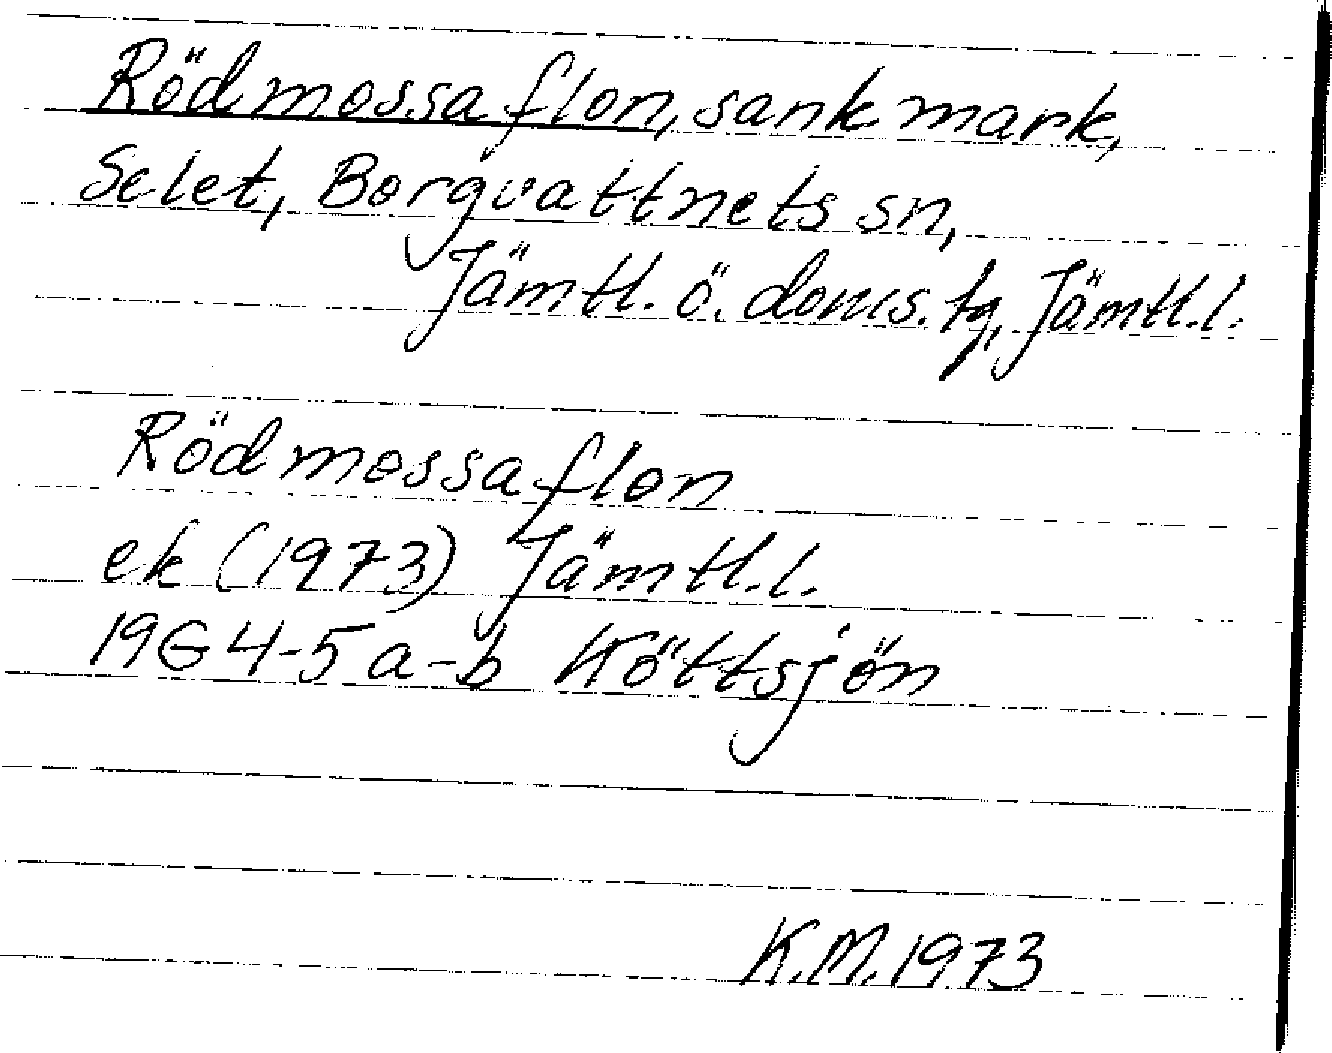 Rödmossaflon, sank mark,
Selet, Borgvattnets sn,
Jämtl. ö. doms. tg, Jämtl. l.
Rödmossaflon
ek (1973) Jämtl. l.
19G 4-5 a-b Köttsjön
K.M. 1973